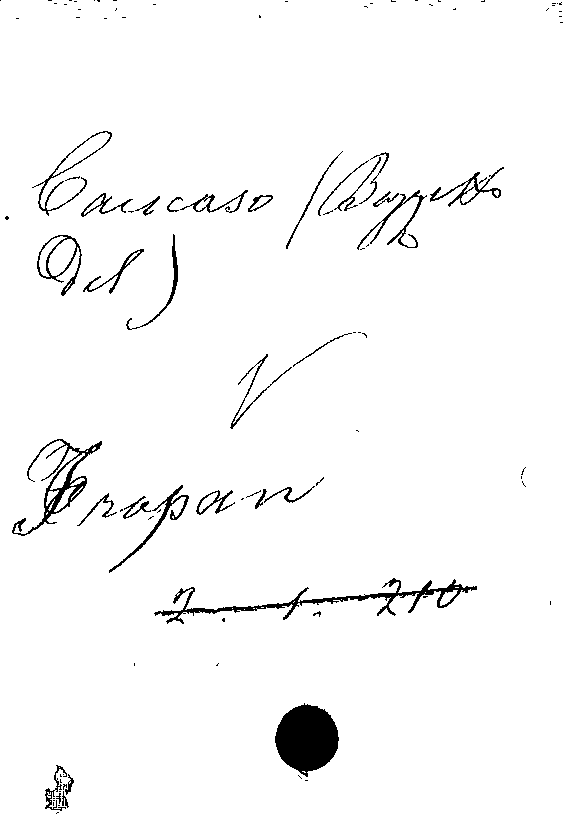 Caucaso (Bozzetto
del)
V
Frapan
2. 1. 210